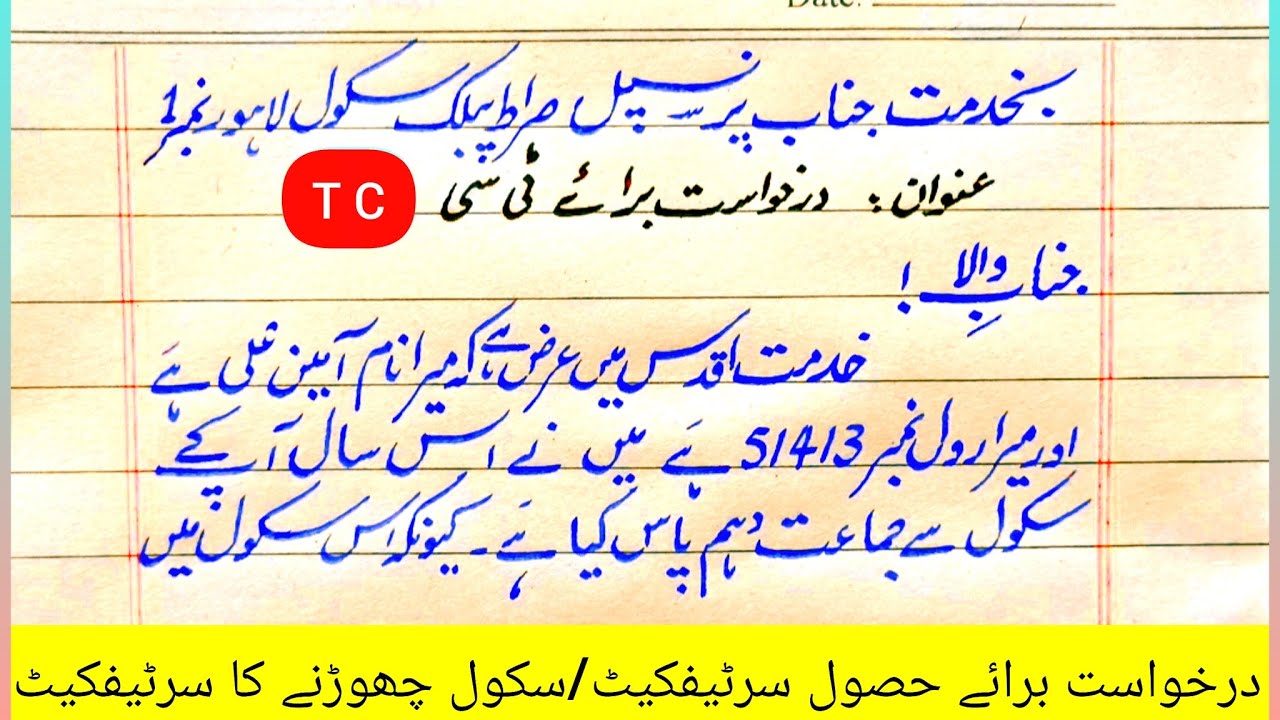 Date:
بخدمت جناب پرنسپل صراط پبلک سکول لاہور نمبر 1
عنوان: درخواست برائے ٹی سی TC
جنابِ والا!
خدمت اقدس میں عرض ہے کہ میرا نام آمین علی ہے
اور میرا رول نمبر 51413 ہے میں نے اس سال آپکے
سکول سے جماعت دہم پاس کیا ہے۔ کیونکہ اس سکول میں
درخواست برائے حصول سرٹیفکیٹ/سکول چھوڑنے کا سرٹیفکیٹ